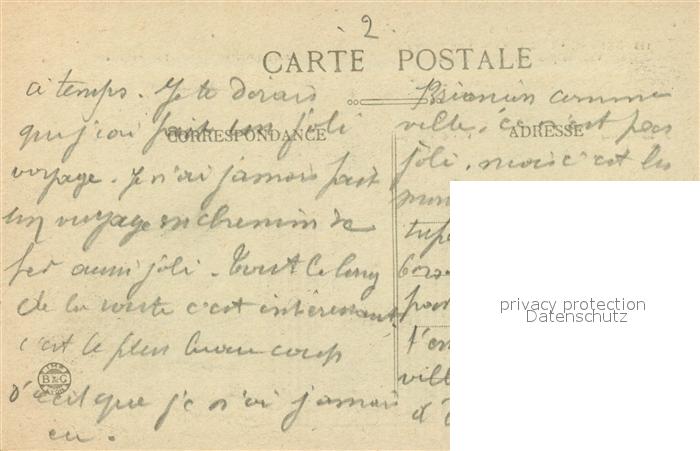 2
CARTE POSTALE
CORRESPONDANCE
ADRESSE
a temps. Je te dirais
que j'ai fait un joli
voyage. Je n'ai jamais fait
un voyage en chemin de
fer aussi joli. Tout le long
de la route c'est intéressant
c'est le plus beau coup
d'œil que je n'ai jamais
eu.
comme
ville, ce n'est pas
joli, mais c'est les
ville
B&G
privacy protection
Datenschutz